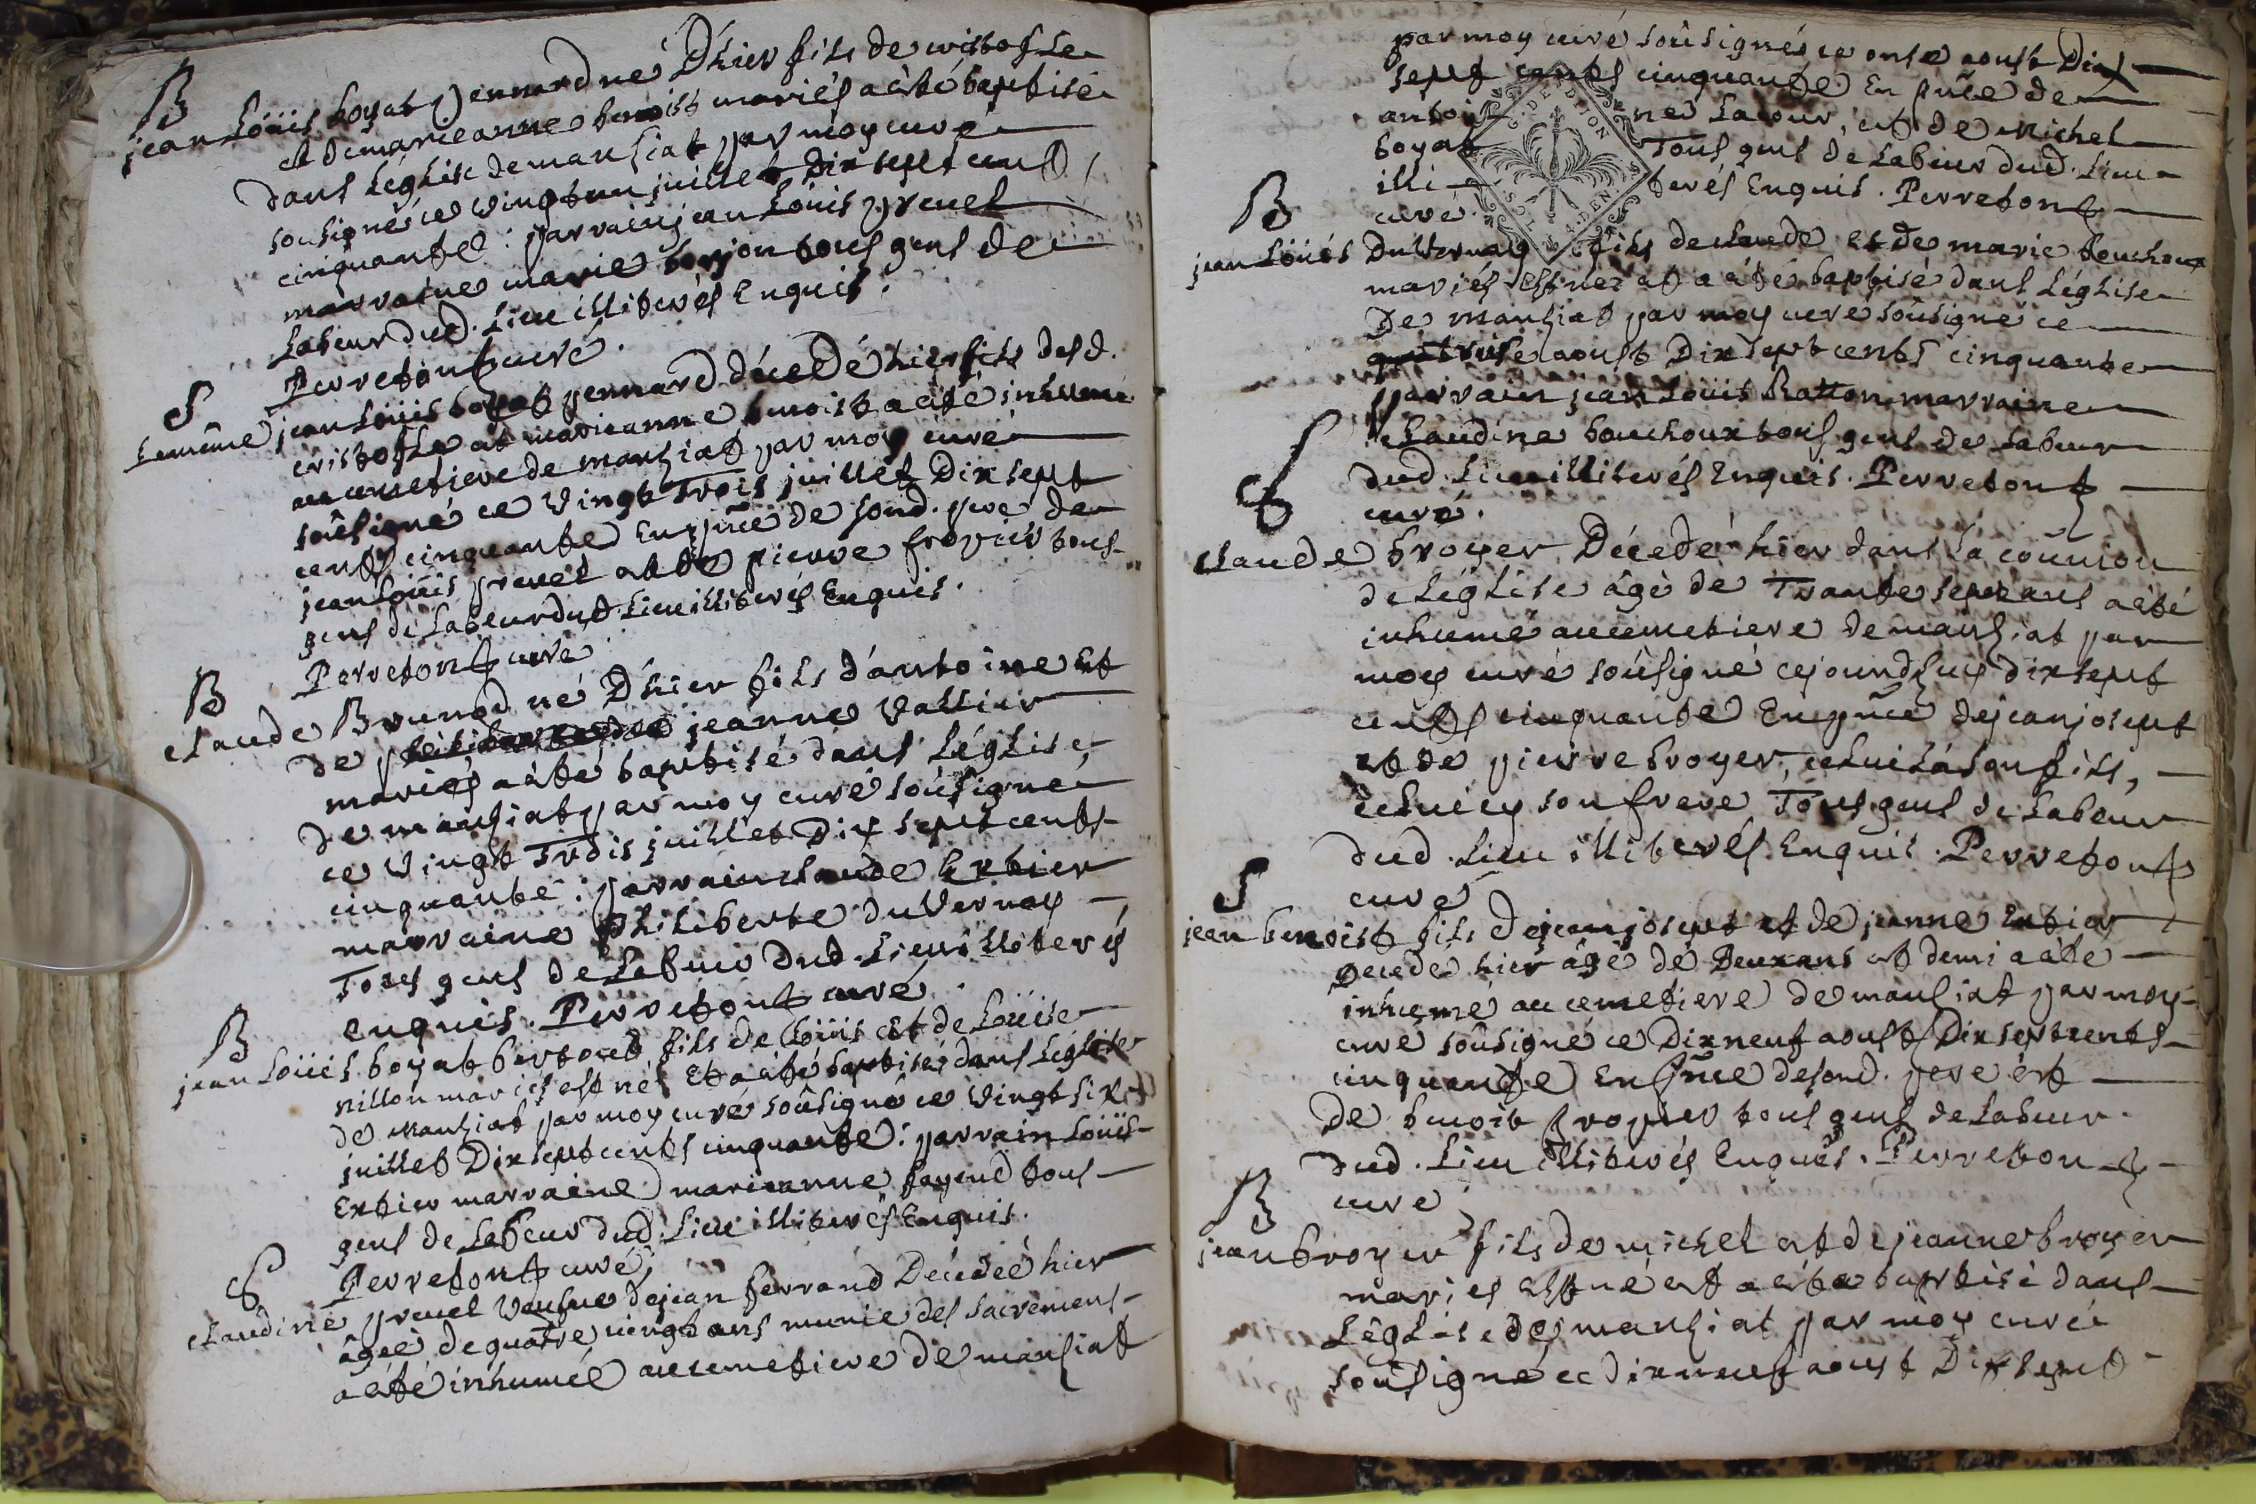 B
jean Loüis boyat pennard né D'hier fils de cristofle
et de marie anne benoist mariés a été baptisé
dans Léglise de manziat par moy curé
sousigné ce vingt un juillet Dix sept cents
cinquante : parrain jean Loüis prevel
marraine marie bonjon tous gens de
Labeur dud. Lieu illiterés Enquis.
Perreton curé.
S
Le même jean Loüis boyat pennard décedé hier fils desd.
cristofle et marieanne benoist a été inhumé
au cemetiere de manziat par moy curé
soûsigné ce vingt Trois juillet Dix sept
cents cinquante En pnce de sond. pere de
jean Loüis prevel et de pierre froppier tous
gens de Labeur dud. Lieu illiterés Enquis.
Perreton curé
B
claude Brunod né D'hier fils d'antoine Et
de jeanne Vallier
mariés a été baptisé dans Léglise
de manziat par moy curé soûsigné
ce vingt Trois juillet Dix sept cents
cinquante : parrain claude Extier
marraine philiberte duvernay
Tous gens de Labeur dud. Lieu illiterés
enquis. Perreton curé.
B
jean Loüis boyat bertoud fils de Loüis et de Loüise
nillon mariés est né Et a été baptisé dans Léglise
de manziat par moy curé soûsigné ce vingt six
juillet Dix sept cents cinquante : parrain Loüis
Extier marraine marieanne fayend tous
gens de Labeur dud. Lieu illiterés Enquis.
Perreton curé.
S
claudine prevel veufve de jean ferrand Décedée hier
âgée de quatre vingt ans munie des sacremens
a été inhumée au cemetiere de manziat
par moy curé soûsigné ce onze aoust Dix
sept cents cinquante En pnce de
antoine Lacour, et de michel
boyat Tous gens de Labeur dud. Lieu
illiterés Enquis. Perreton
curé.
G. DE DIJON
4. DEN
B
jean Loüis Duvernay fils de claude et de marie bouchoux
mariés est né et a été baptisé dans Léglise
De manziat par moy curé soûsigné ce
aoust Dix sept cents cinquante
parrain jean Loüis Ratton marraine
claudine bouchoux tous gens de Labeur
dud. Lieu illiterés Enquis. Perreton
curé.
S
claude broyer Décedé hier dans la coumion
de Léglise âgé de Trante sept ans a été
inhumé au cemetiere de manziat par
moy curé soûsigné cejourdhuy dix sept
cents cinquante En pnce de jean josept
et de pierre broyer, celui là son fils,
celui cy son frere Tous gens de Labeur
dud. Lieu illiterés Enquis. Perreton
curé
S
jean benoist fils de jean josept et de jeanne Extier
Decedé hier âgé de Deux ans et demi a été
inhumé au cemetiere de manziat par moy
curé soûsigné ce Dix neuf aoust Dix sept cents
cinquante En pnce de sond. pere et
de benoit froppier tous gens de Labeur
dud. Lieu illiterés Enquis. Perreton
curé
B
jean broyer fils de michel et de jeanne broyer
mariés est né et a été baptisé dans
Léglise de manziat par moy curé
soûsigné ce dix neuf aoust Dix sept